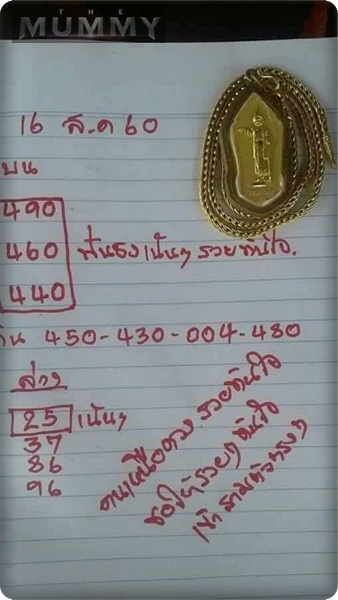 THE
MUMMY
16 ส.ค 60
บน
490
460 ฟันธง เน้นๆ รวยทันใจ.
440
450-430-004-480
ล่าง
25 เน้นๆ
37
86
96
คนเหนือดวง รวยทันใจ
ขอให้รวยๆ ทันใจ
เข้า สามตัวตรงๆ